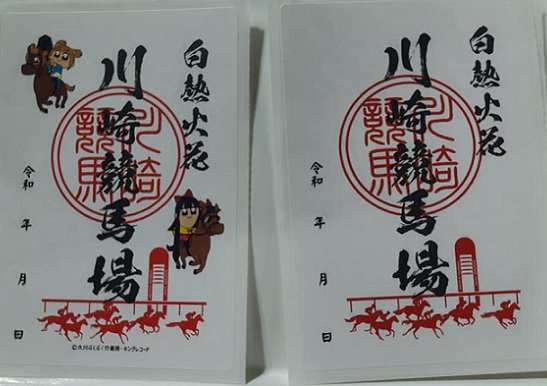 白熱火花
川崎競馬場
川崎競馬
令和 年 月 日
©大川ぶくぶ/竹書房・キングレコード
白熱火花
川崎競馬場
川崎競馬
令和 年 月 日